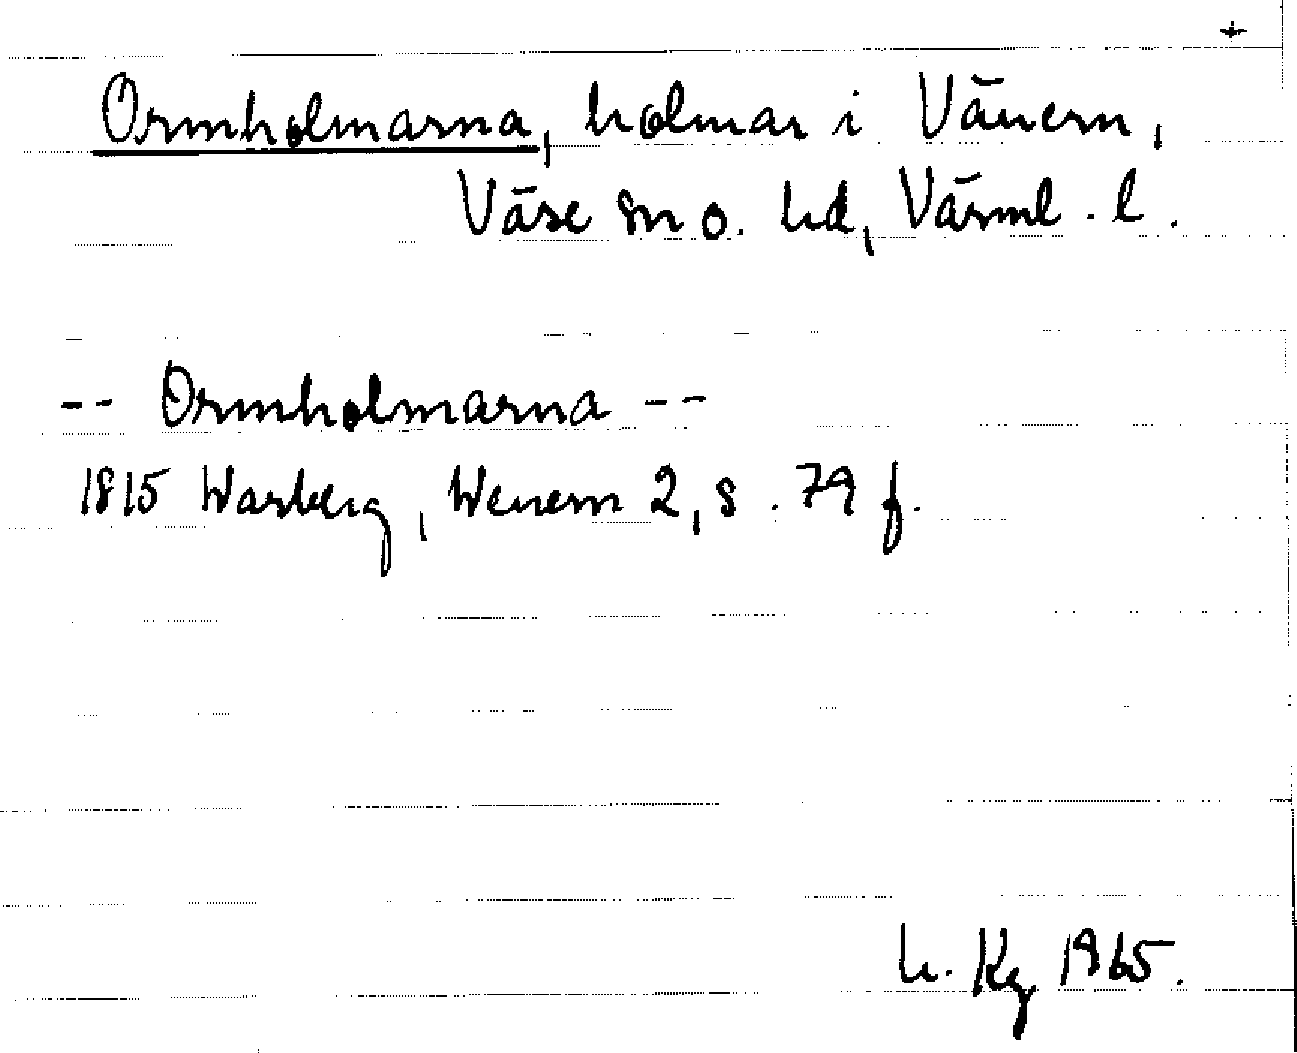 +
Ormholmarna, holmar i Vänern,
Väse sn o. hd, Värml. l.
-- Ormholmarna --
1815 Warberg, Wenern 2, s. 79 f.
h. Kg 1965.